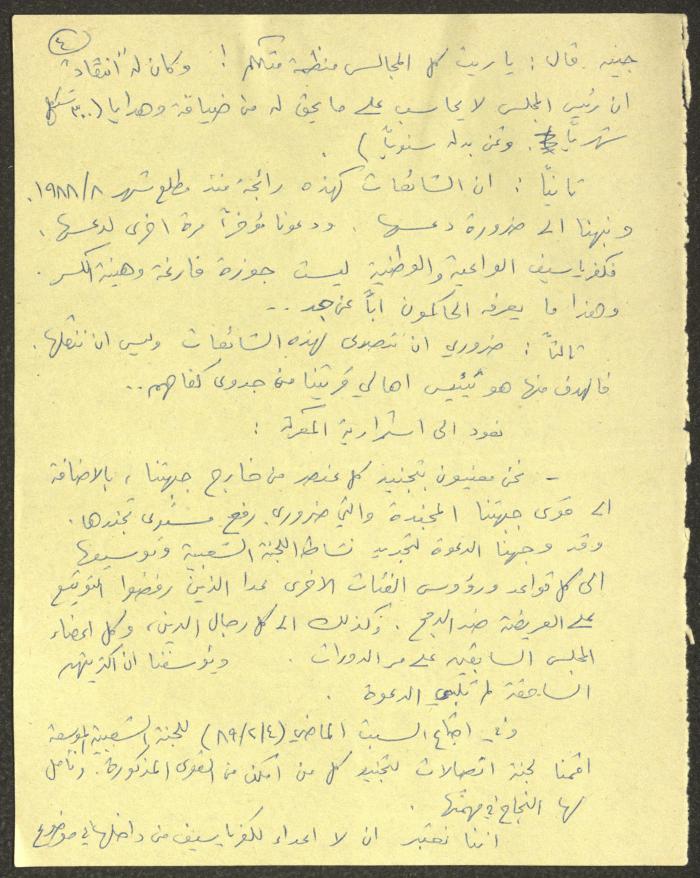 ٤
جينه. قال: يا ريت كل المجالس منظمة مثلكم! وكان له "انتقاد"
ان رئيس المجلس لا يحاسب على ما يحق له من ضيافة وهدايا (٣٠٠ شيكل
شهريًا. وثمن بدله سنويًا).
ثانيًا: ان الشائعات كهذه رائجة منذ مطلع شهر ١٩٨٨/٨.
ونبهنا الى ضرورة دعسها. ودعونا مؤخرًا مرة اخرى لدعسها.
فكفرياسيف الواعية والوطنية ليست جوزة فارغة وهينة الكسر.
وهذا ما يعرفه الحاكمون ابًا عن جد ..
ثالثًا: ضروري ان نتصدى لهذه الشائعات وليس ان ننقلها.
فالهدف منها هو تيئيس اهالي قريتنا من جدوى كفاحهم..
نعود الى استمرارية المعركة:
- نحن معنيون بتجنيد كل عنصر من خارج جبهتنا، بالاضافة
الى قوى جبهتنا المجندة والتي ضروري رفع مستوى تجندها.
وقد وجهنا الدعوة لتجديد نشاط اللجنة الشعبية وتوسيعها
الى كل قواعد ورؤوس الفئات الاخرى عدا الذين رفضوا التوقيع
على العريضة ضد الدمج. وكذلك الى كل رجال الدين، وكل اعضاء
المجلس السابقين على مر الدورات. ويؤسفنا ان اكثريتهم
الساحقة لم تلبي الدعوة.
وفي اجتماع السبت الماضي (٨٩/٢/٤) للجنة الشعبية الموسعة
اقمنا لجنة اتصالات لتجنيد كل من امكن من القوى المذكورة. ونأمل
لها النجاح في مهمتها.
اننا نعتبر ان لا اعداء لكفرياسيف من داخلها في موضوع